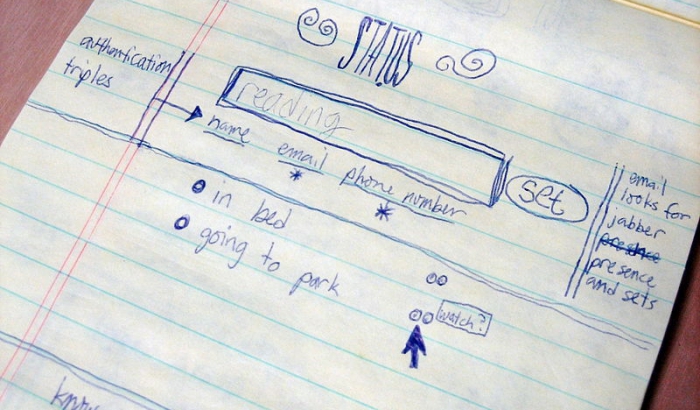 STATUS
authentication
triples
reading
name email phone number
* *
set
in bed
going to park
watch?
email
looks for
jabber
presence
and sets